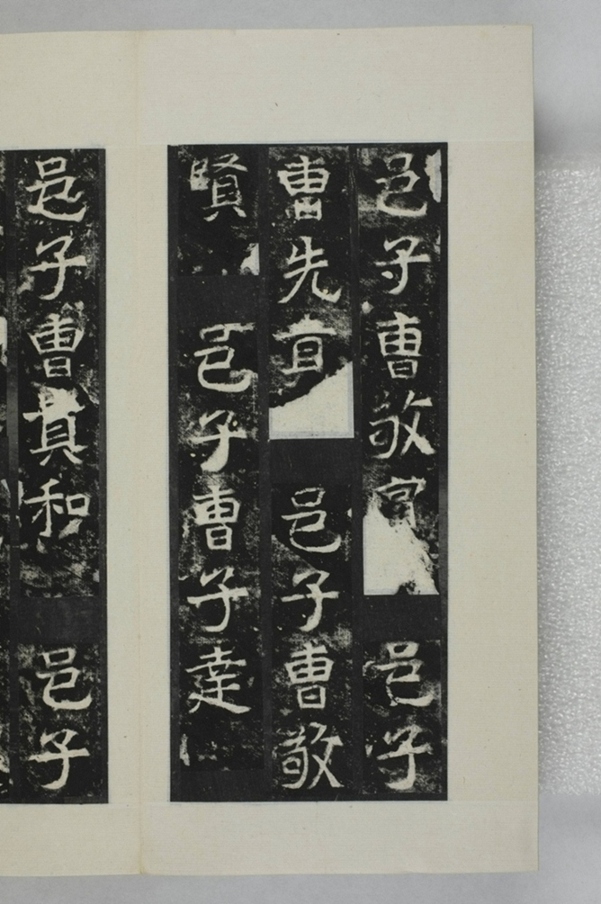 邑子曹敬宮邑子
曹先宜邑子曹敬
賢邑子曹子達
邑子曹真和邑子